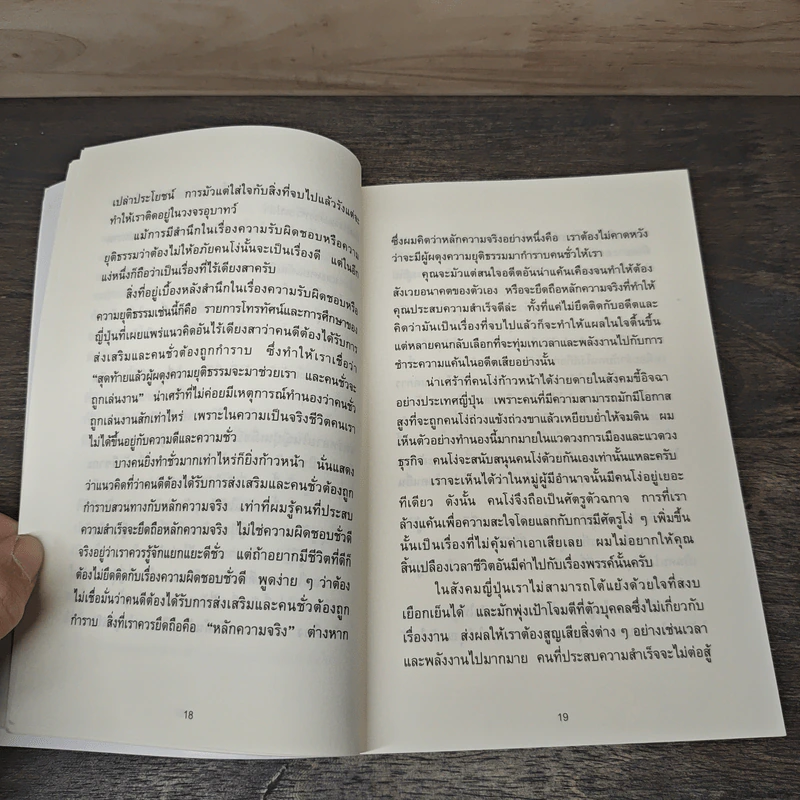 เปล่าประโยชน์ การมัวแต่ใส่ใจกับสิ่งที่จบไปแล้วรังแต่จะ
ทำให้เราติดอยู่ในวงจรอุบาทว์
แม้การมีสำนึกในเรื่องความรับผิดชอบหรือความ
ยุติธรรมว่าต้องไม่ให้อภัยคนโง่นั้นจะเป็นเรื่องดี แต่ในอีก
แง่หนึ่งก็ถือว่าเป็นเรื่องที่ไร้เดียงสาครับ
สิ่งที่อยู่เบื้องหลังสำนึกในเรื่องความรับผิดชอบหรือ
ความยุติธรรมเช่นนี้ก็คือ รายการโทรทัศน์และการศึกษาของ
ญี่ปุ่นที่เผยแพร่แนวคิดอันไร้เดียงสาว่าคนดีต้องได้รับการ
ส่งเสริมและคนชั่วต้องถูกกำราบ ซึ่งทำให้เราเชื่อว่า
“สุดท้ายแล้วผู้ผดุงความยุติธรรมจะมาช่วยเรา และคนชั่วจะ
ถูกเล่นงาน” น่าเศร้าที่ไม่ค่อยมีเหตุการณ์ทำนองว่าคนชั่ว
ถูกเล่นงานสักเท่าไหร่ เพราะในความเป็นจริงชีวิตคนเรา
ไม่ได้ขึ้นอยู่กับความดีและความชั่ว
บางคนยิ่งทำชั่วมากเท่าไหร่ก็ยิ่งก้าวหน้า นั่นแสดง
ว่าแนวคิดที่ว่าคนดีต้องได้รับการส่งเสริมและคนชั่วต้องถูก
กำราบสวนทางกับหลักความจริง เท่าที่ผมรู้คนที่ประสบ
ความสำเร็จจะยึดถือหลักความจริง ไม่ใช่ความผิดชอบชั่วดี
จริงอยู่ว่าเราควรรู้จักแยกแยะดีชั่ว แต่ถ้าอยากมีชีวิตที่ดีก็
ต้องไม่ยึดติดกับเรื่องความผิดชอบชั่วดี พูดง่าย ๆ ว่าต้อง
ไม่เชื่อมั่นว่าคนดีต้องได้รับการส่งเสริมและคนชั่วต้องถูก
กำราบ สิ่งที่เราควรยึดถือคือ “หลักความจริง” ต่างหาก
18
ซึ่งผมคิดว่าหลักความจริงอย่างหนึ่งคือ เราต้องไม่คาดหวัง
ว่าจะมีผู้ผดุงความยุติธรรมมากำราบคนชั่วให้เรา
คุณจะมัวแต่สนใจอดีตอันน่าแค้นเคืองจนทำให้ต้อง
สังเวยอนาคตของตัวเอง หรือจะยึดถือหลักความจริงที่ทำให้
คุณประสบความสำเร็จดีล่ะ ทั้งที่แค่ไม่ยึดติดกับอดีตและ
คิดว่ามันเป็นเรื่องที่จบไปแล้วก็จะทำให้แผลในใจตื้นขึ้น
แต่หลายคนกลับเลือกที่จะทุ่มเทเวลาและพลังงานไปกับการ
ชำระความแค้นในอดีตเสียอย่างนั้น
น่าเศร้าที่คนโง่ก้าวหน้าได้ง่ายดายในสังคมขี้อิจฉา
อย่างประเทศญี่ปุ่น เพราะคนที่มีความสามารถมักมีโอกาส
สูงที่จะถูกคนโง่ถ่วงแข้งถ่วงขาแล้วเหยียบย่ำให้จมดิน ผม
เห็นตัวอย่างทำนองนี้มากมายในแวดวงการเมืองและแวดวง
ธุรกิจ คนโง่จะสนับสนุนคนโง่ด้วยกันเองเท่านั้นแหละครับ
เราจะเห็นได้ว่าในหมู่ผู้มีอำนาจนั้นมีคนโง่อยู่เยอะ
ทีเดียว ดังนั้น คนโง่จึงถือเป็นศัตรูตัวฉกาจ การที่เรา
ล้างแค้นเพื่อความสะใจโดยแลกกับการมีศัตรูโง่ ๆ เพิ่มขึ้น
นั้นเป็นเรื่องที่ไม่คุ้มค่าเอาเสียเลย ผมไม่อยากให้คุณ
สิ้นเปลืองเวลาชีวิตอันมีค่าไปกับเรื่องพรรค์นั้นครับ
ในสังคมญี่ปุ่นเราไม่สามารถโต้แย้งด้วยใจที่สงบ
เยือกเย็นได้ และมักพุ่งเป้าโจมตีที่ตัวบุคคลซึ่งไม่เกี่ยวกับ
เรื่องงาน ส่งผลให้เราต้องสูญเสียสิ่งต่าง ๆ อย่างเช่นเวลา
และพลังงานไปมากมาย คนที่ประสบความสำเร็จจะไม่ต่อสู้
19